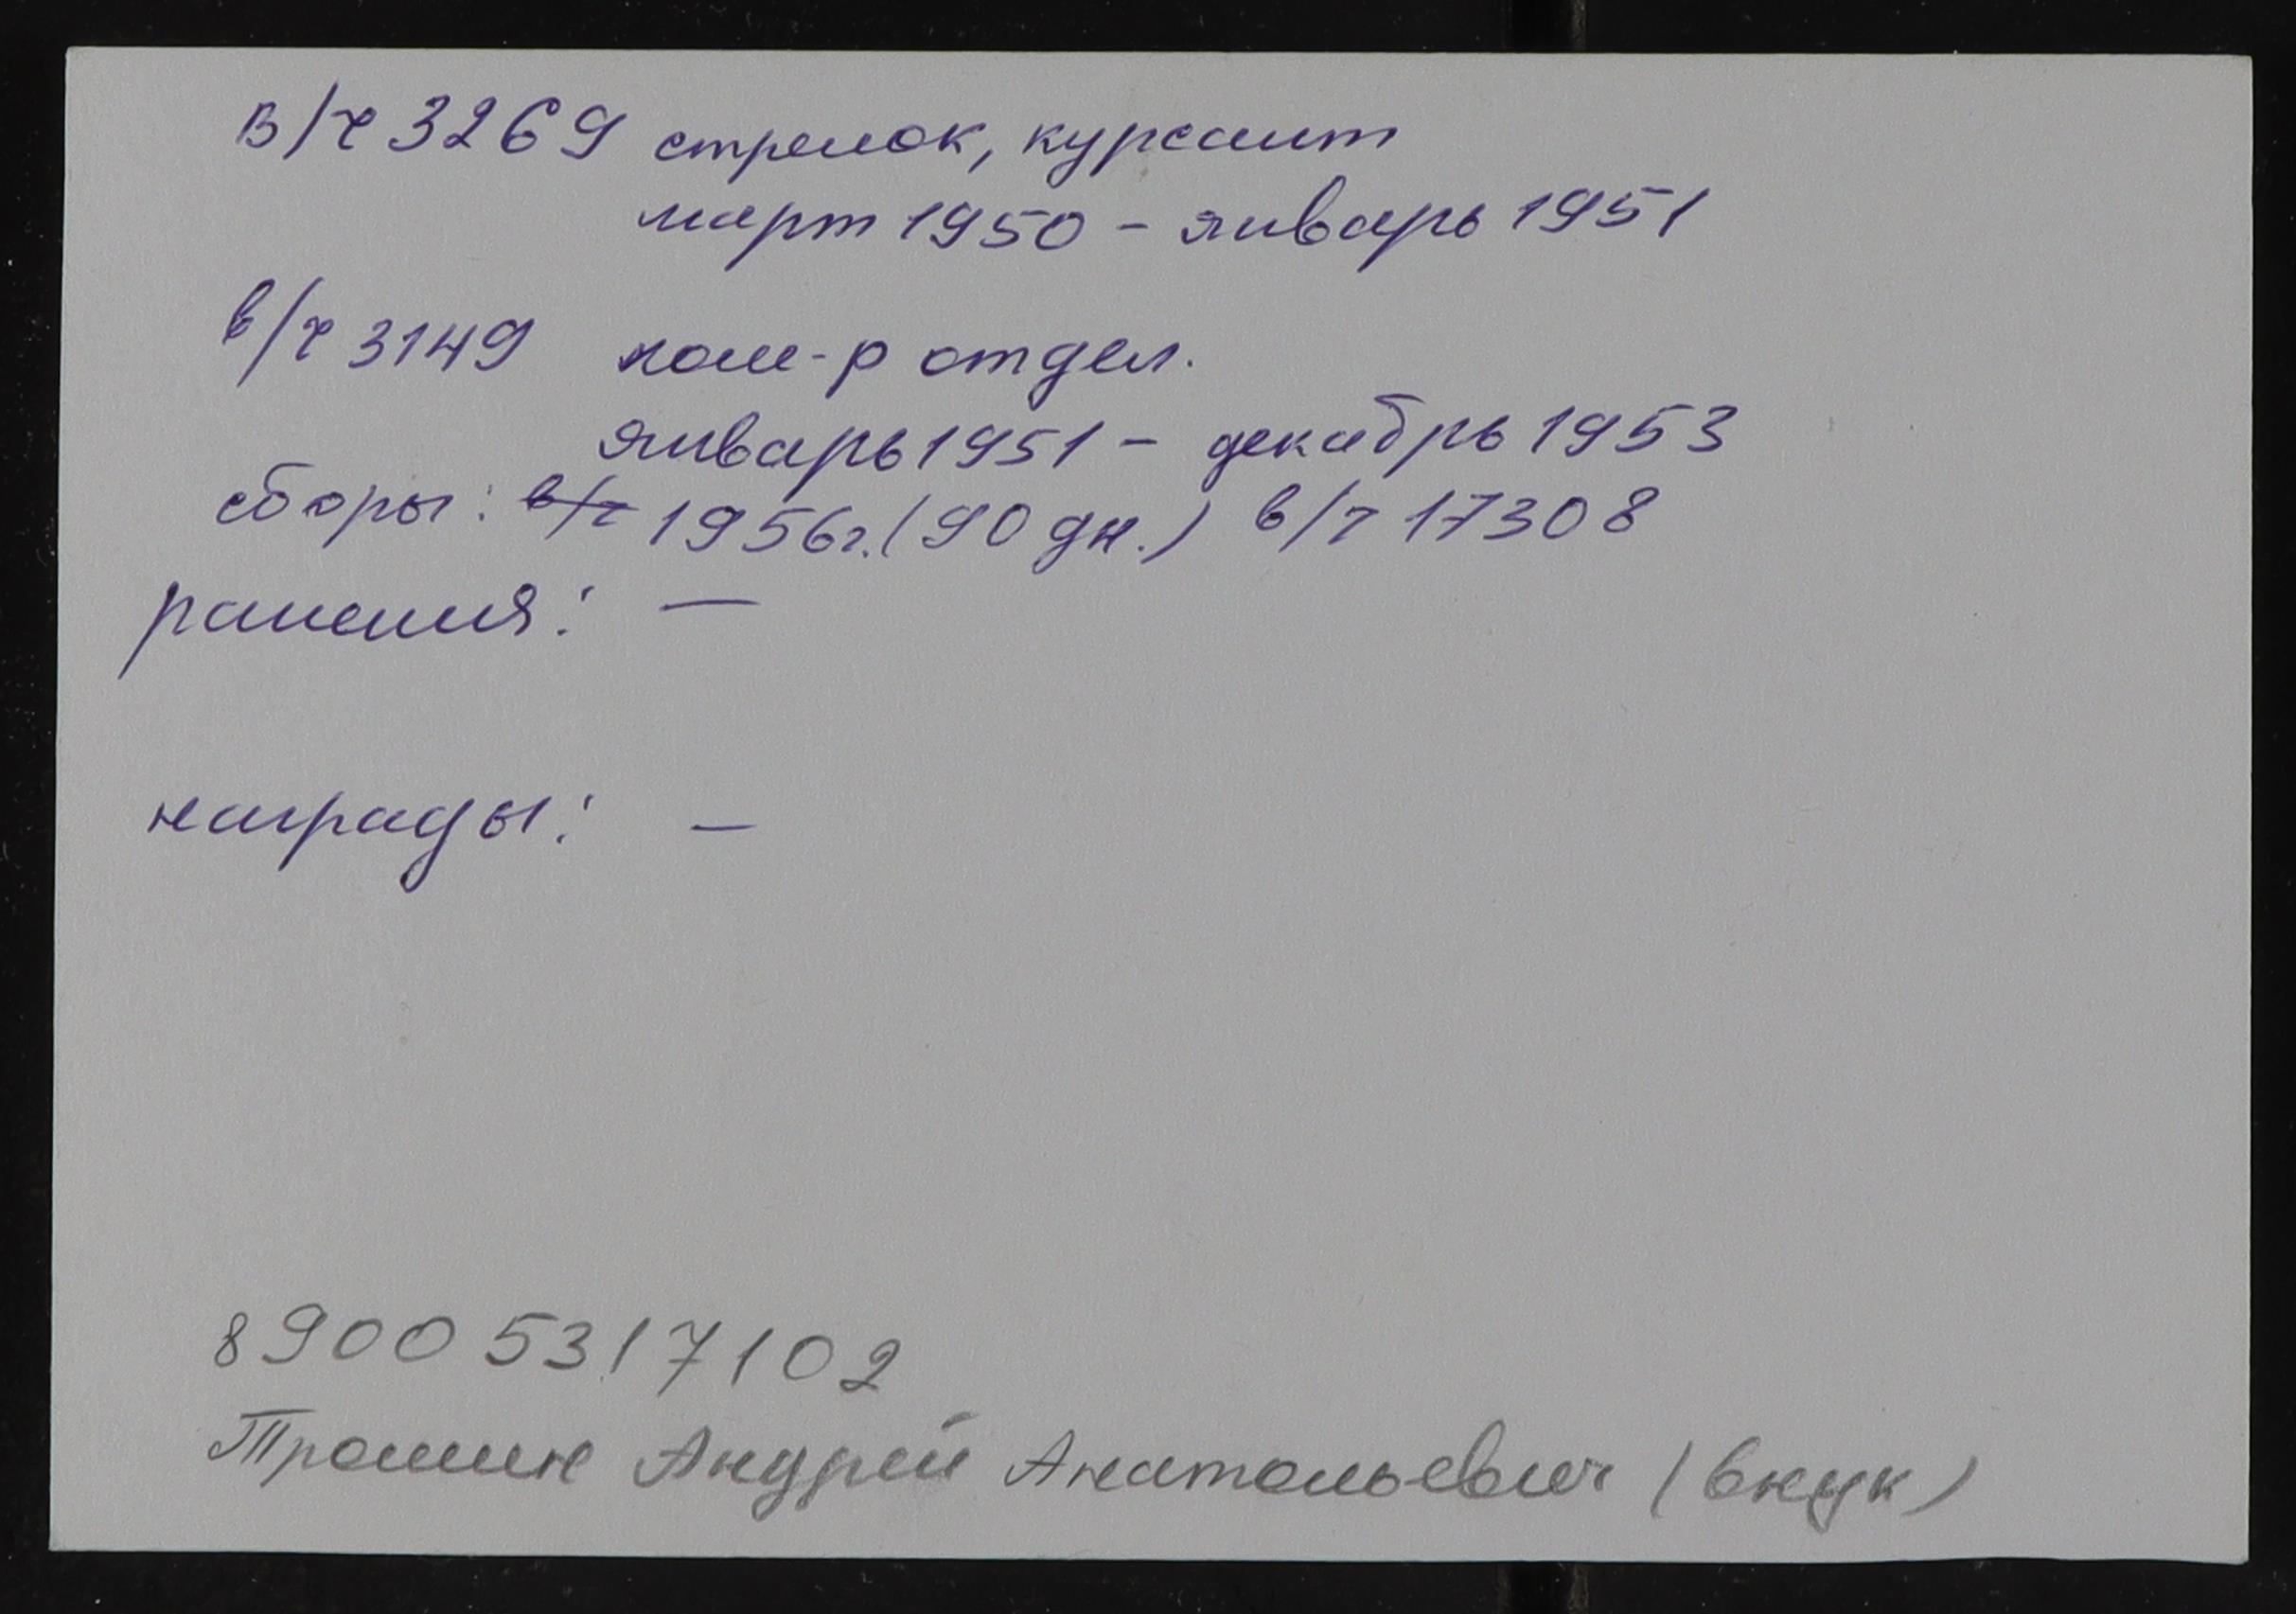 в/ч 3269 стрелок, курсант
март 1950 - январь 1951
в/ч 3149 ком-р отдел.
январь 1951 - декабрь 1953
сборы: в/ч 1956г. (90 дн.) в/ч 17308
ранения: —
награды: —
8900 5317102
Трошин Андрей Анатольевич (внук)